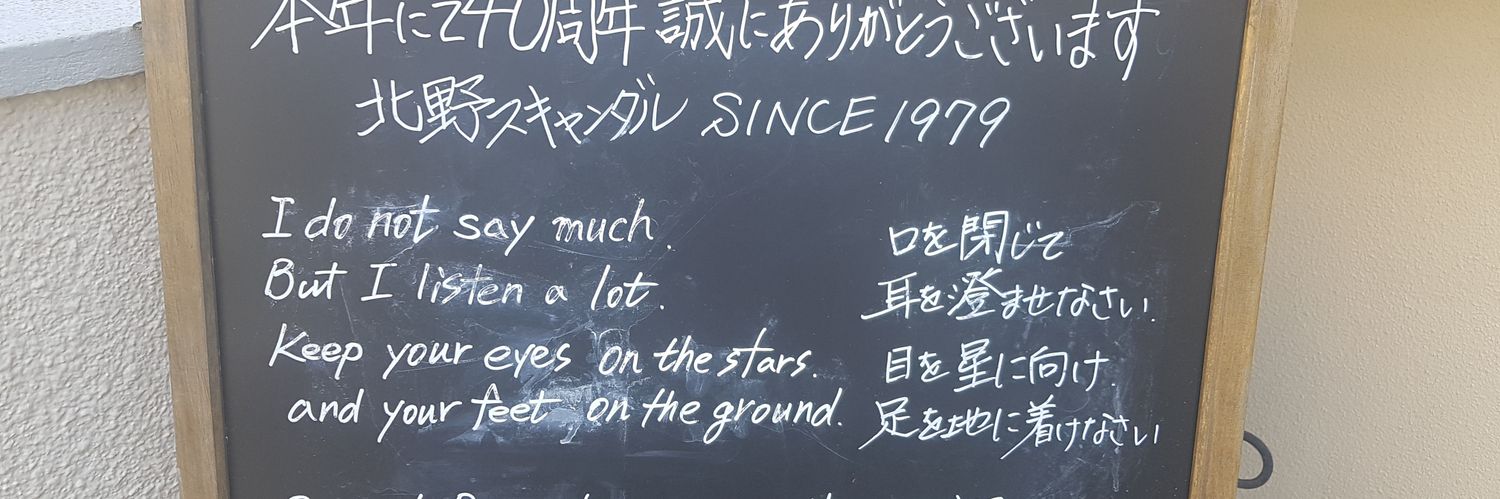 本年にて40周年 誠にありがとうございます
北野スキャンダル SINCE 1979
I do not say much.
But I listen a lot.
Keep your eyes on the stars.
and your feet on the ground.
口を閉じて
耳を澄ませなさい.
目を星に向け.
足を地に着けなさい